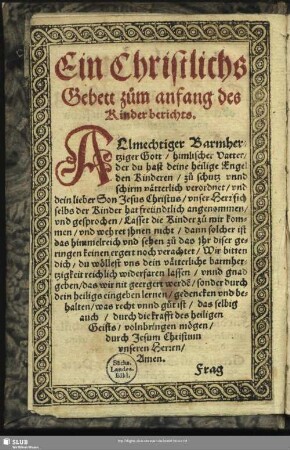 Ein Christlichs
Gebett zům anfang des
Kinder berichts.
ALmechtiger Barmher-
tziger Gott / himlischer Vatter /
der du hast deine heilige Engel
den Kinderen / zů schutz vnnd
schirm vätterlich verordnet / vnd
dein lieber Son Jesus Christus / vnser Herr sich
selbs der Kinder hat freündtlich angenommen /
vnd gesprochen / Lasset die Kinder zů mir kom-
men / vnd wehret jhnen nicht / dann solcher ist
das himmelreich vnd sehen zů das jhr diser ge-
ringen keinen ergert noch verachtet / Wir bitten
dich / du wöllest vns dein väterliche barmher-
tzigkeit reichlich widerfaren lassen / vnnd gnad
geben / das wir nit geergert werdē / sonder durch
dein heiligs eingeben lernen / gedencken vnd be-
halten / was recht vnnd gůt ist / das selbig
auch / durch die krafft des heiligen
Geists / volnbringen mögen /
durch Jesum Christum
vnseren Herren /
Amen.
Frag
Sächs.
Landes-
Bibl.
SLUB